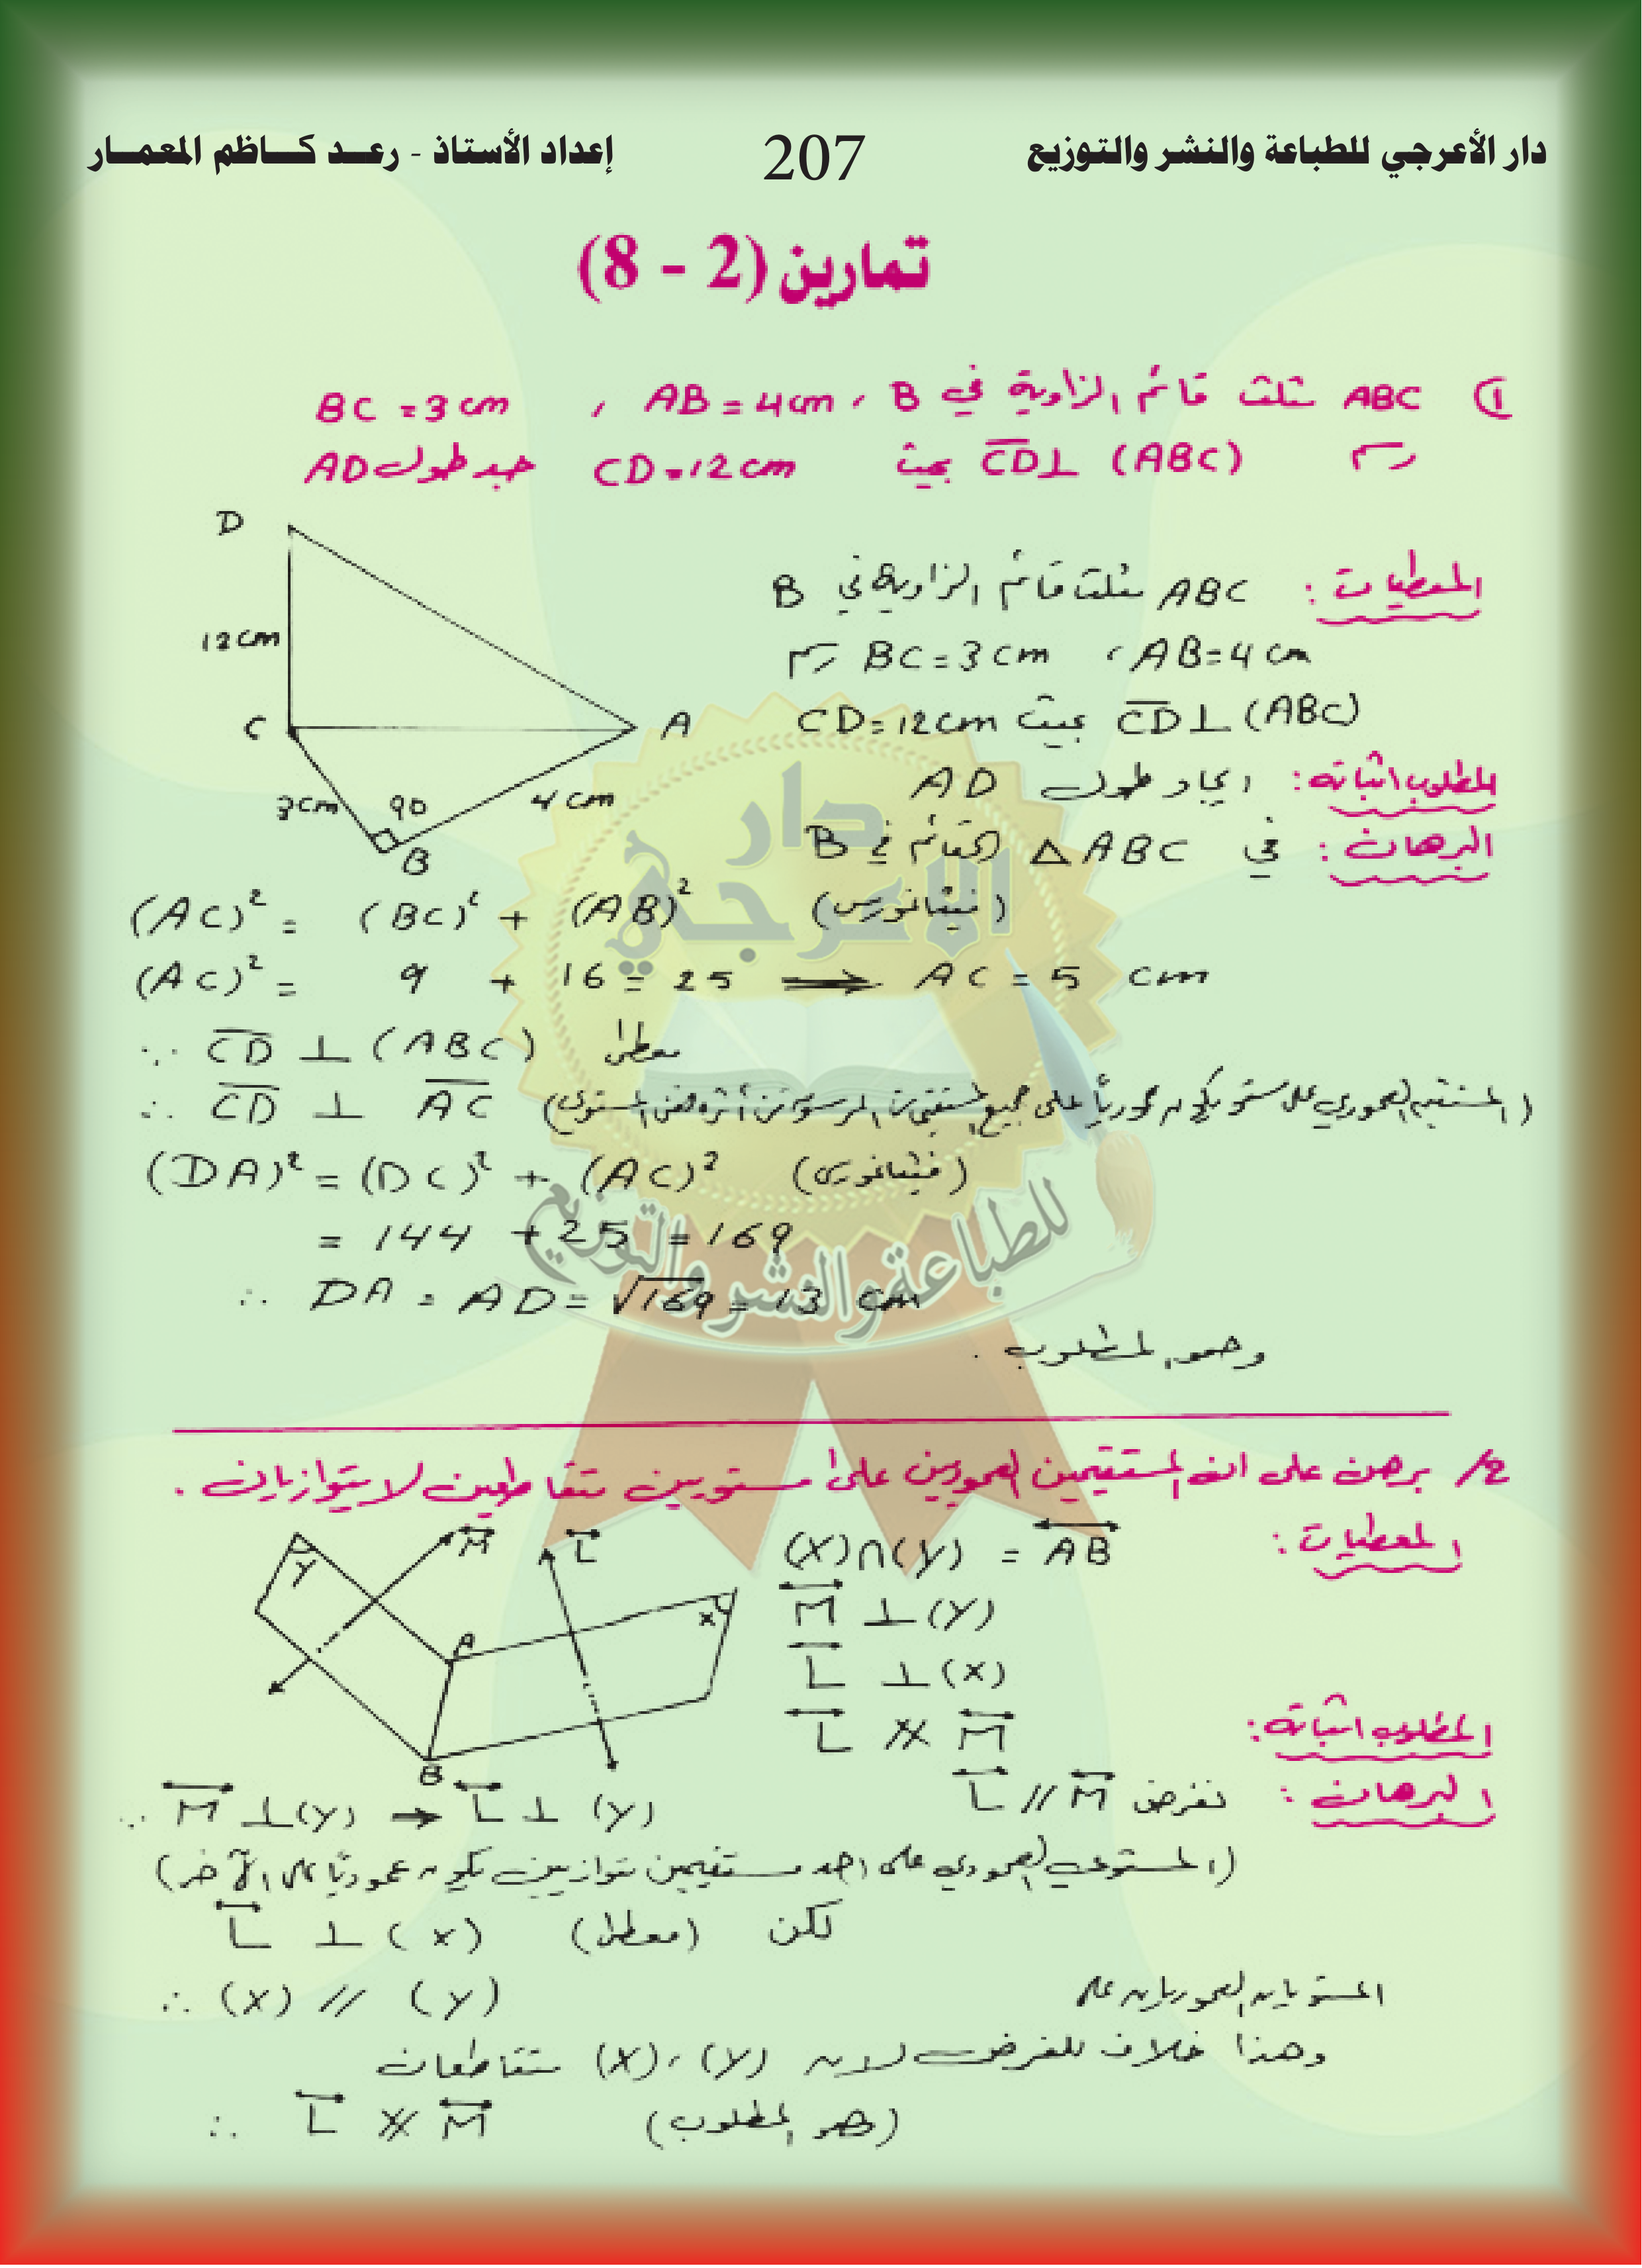 دار الأعرجي للطباعة والنشر والتوزيع 207 إعداد الأستاذ - رعـد كـاظم المعمـار
تمارين (2 - 8)
1) ABC مثلث قائم الزاوية في B ، AB = 4cm ، BC = 3cm
رسم CD⊥ (ABC) بحيث CD = 12cm جد طول AD
D
12cm
C
A
3cm
90
4cm
B
المعطيات : ABC مثلث قائم الزاوية في B
AB = 4 cm ، BC = 3 cm رسم
CD⊥(ABC) بحيث CD = 12cm
المطلوب اثباته : ايجاد طول AD
البرهان : في △ ABC القائم في B
(AC)² = (BC)² + (AB)² (فيثاغورس)
(AC)² = 9 + 16 = 25 ⟹ AC = 5 cm
∵ CD ⊥ (ABC) معطى
∴ CD ⊥ AC (المستقيم العمودي على مستو يكون عمودياً على جميع المستقيمات المرسومة من أثره ضمن المستوي)
(DA)² = (DC)² + (AC)² (فيثاغورس)
= 144 + 25 = 169
∴ DA = AD = √169 = 13 cm
وهو المطلوب .
2/ برهن على ان المستقيمين العموديين على مستويين متقاطعين لا يتوازيان .
المعطيات : (X)∩(Y) = AB
M ⊥ (Y)
L ⊥ (X)
المطلوب اثباته : L ∦ M
البرهان : نفرض L // M
Y
M
L
X
A
B
∵ M ⊥(Y) → L ⊥ (Y)
(المستوي العمودي على احد مستقيمين متوازيين يكون عمودياً على الآخر)
لكن L ⊥ (X) (معطى)
∴ (X) // (Y) المستويان العموديان على
وهذا خلاف للفرض لان (Y) ، (X) متقاطعان
∴ L ∦ M (وهو المطلوب)
دار
الاعرجي
للطباعة والنشر والتوزيع